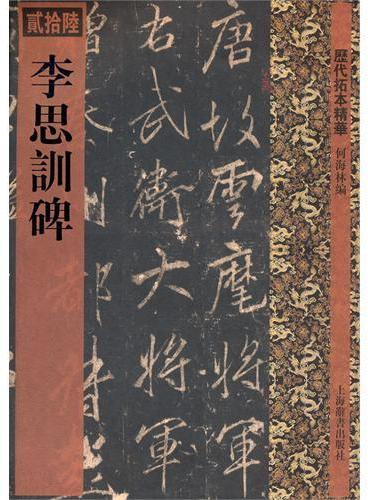 貳拾陸
李思訓碑
歷代拓本精華
何海林編
上海辭書出版社
唐故雲麾將軍
右武衛大將軍